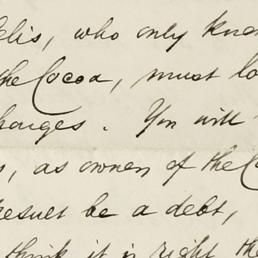 who only
the Cocoa, must
charges. You will
, as owner of the
result be a debt,
think it is right the